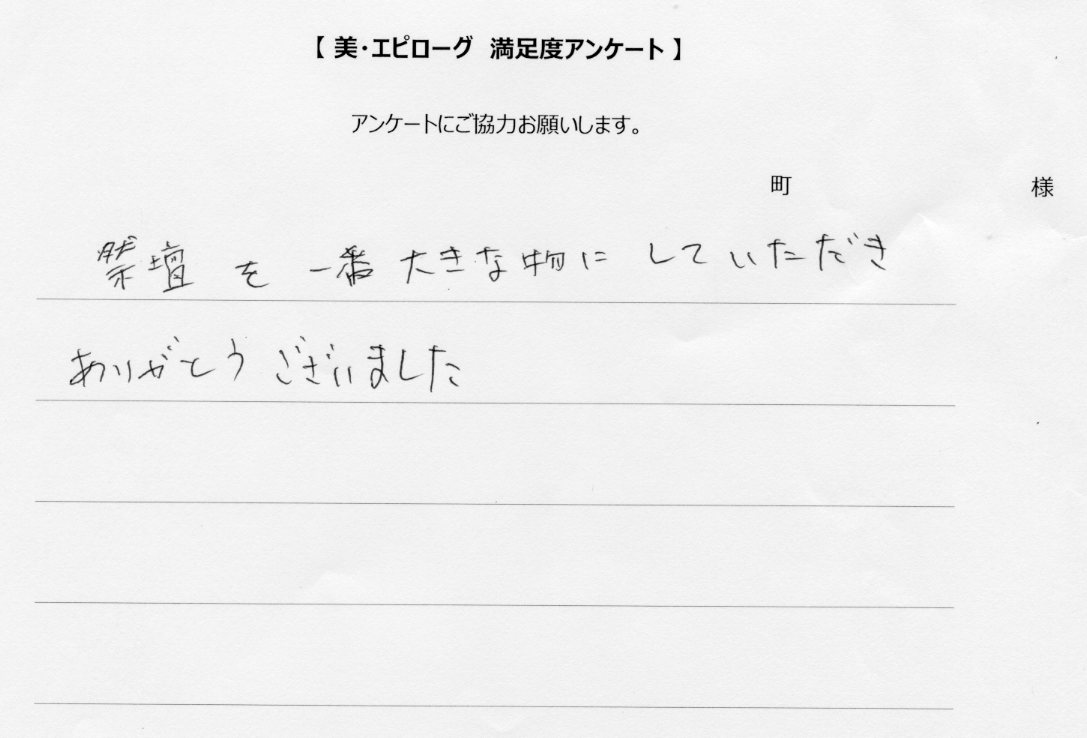 【 美・エピローグ 満足度アンケート 】
アンケートにご協力お願いします。
町 様
祭壇を一番大きな物にしていただき
ありがとうございました